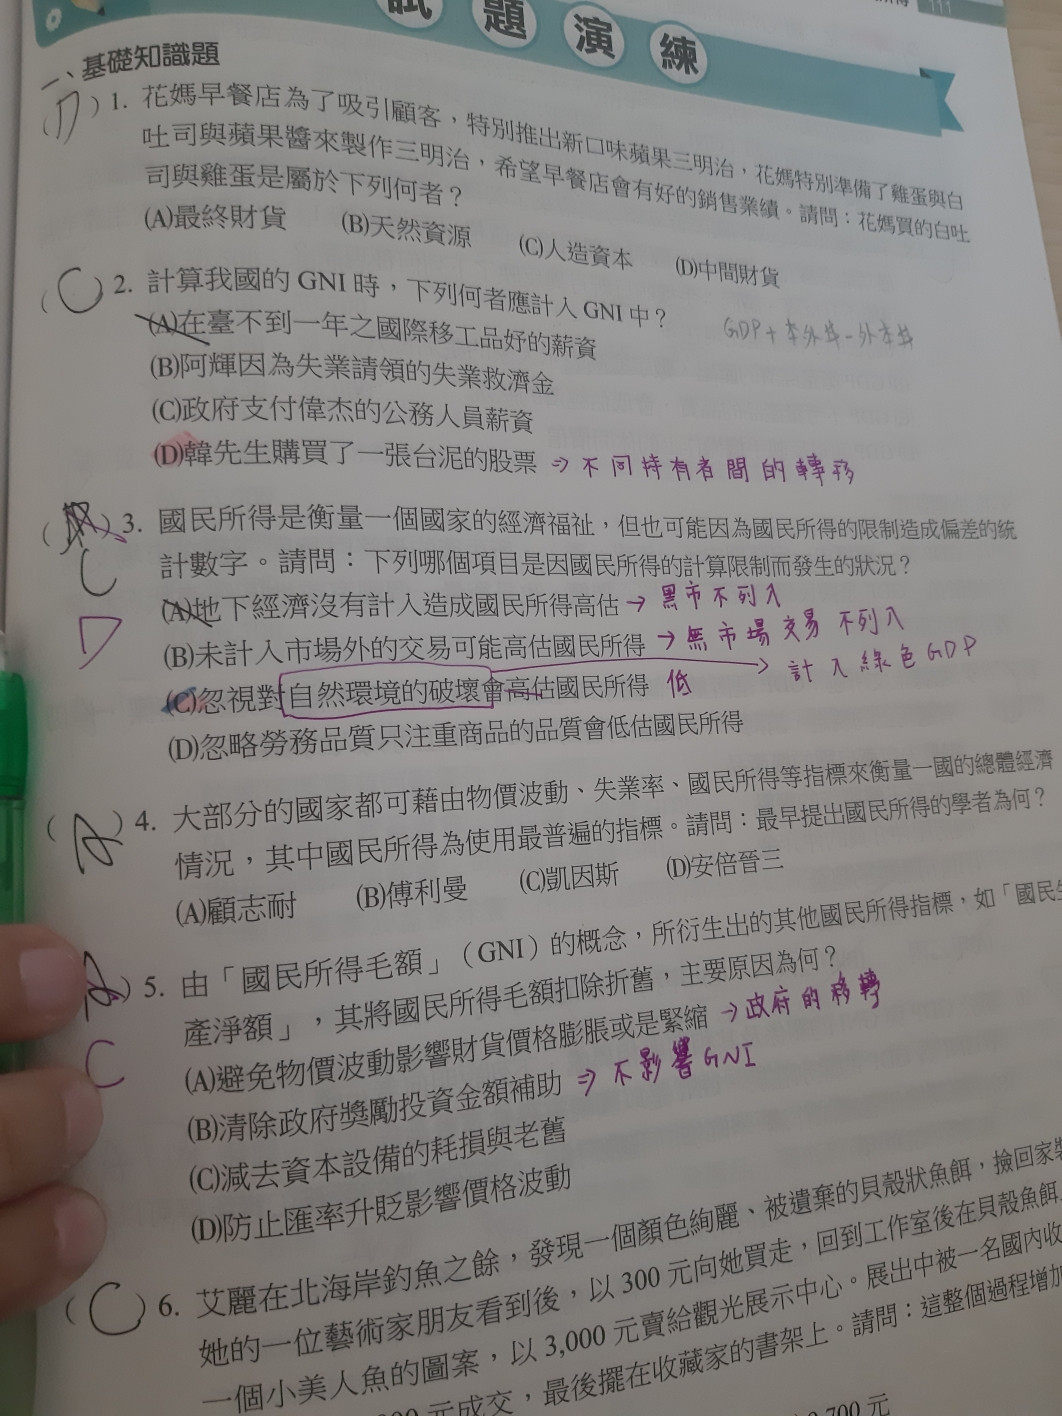 111
試題演練
一、基礎知識題
(D) 1. 花媽早餐店為了吸引顧客，特別推出新口味蘋果三明治，花媽特別準備了雞蛋與白
吐司與蘋果醬來製作三明治，希望早餐店會有好的銷售業績。請問：花媽買的白吐
司與雞蛋是屬於下列何者？
(A)最終財貨 (B)天然資源 (C)人造資本 (D)中間財貨
(C) 2. 計算我國的 GNI 時，下列何者應計入 GNI 中？
(A)在臺不到一年之國際移工品妤的薪資
GDP + 本外生 - 外本生
(B)阿輝因為失業請領的失業救濟金
(C)政府支付偉杰的公務人員薪資
(D)韓先生購買了一張台泥的股票 ⇒ 不同持有者間的轉移
( ) 3. 國民所得是衡量一個國家的經濟福祉，但也可能因為國民所得的限制造成偏差的統
C
計數字。請問：下列哪個項目是因國民所得的計算限制而發生的狀況？
D
(A)地下經濟沒有計入造成國民所得高估 → 黑市不列入
(B)未計入市場外的交易可能高估國民所得 → 無市場交易不列入
(C)忽視對自然環境的破壞會高估國民所得 低 → 計入綠色GDP
(D)忽略勞務品質只注重商品的品質會低估國民所得
(A) 4. 大部分的國家都可藉由物價波動、失業率、國民所得等指標來衡量一國的總體經濟
情況，其中國民所得為使用最普遍的指標。請問：最早提出國民所得的學者為何？
(A)顧志耐 (B)傅利曼 (C)凱因斯 (D)安倍晉三
(A) 5. 由「國民所得毛額」（GNI）的概念，所衍生出的其他國民所得指標，如「國民生
產淨額」，其將國民所得毛額扣除折舊，主要原因為何？
C
(A)避免物價波動影響財貨價格膨脹或是緊縮 → 政府的移轉
(B)清除政府獎勵投資金額補助 ⇒ 不影響GNI
(C)減去資本設備的耗損與老舊
(D)防止匯率升貶影響價格波動
(C) 6. 艾麗在北海岸釣魚之餘，發現一個顏色絢麗、被遺棄的貝殼狀魚餌，撿回家裝
她的一位藝術家朋友看到後，以 300 元向她買走，回到工作室後在貝殼魚餌
一個小美人魚的圖案，以 3,000 元賣給觀光展示中心。展出中被一名國內收
元成交，最後擺在收藏家的書架上。請問：這整個過程增加
700 元